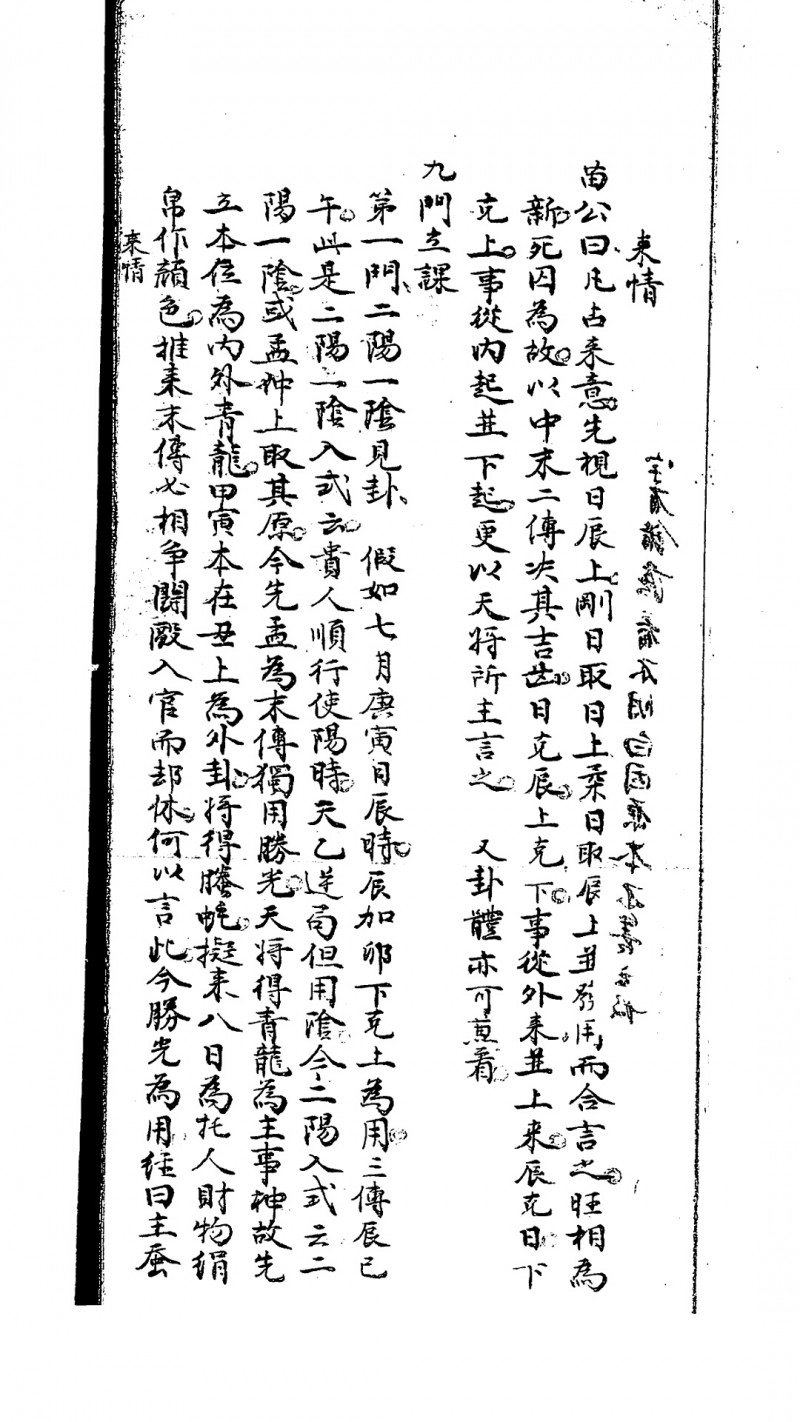 来情
苗公曰凡占来意先視日辰上剛日取日上柔日取辰上並發用而合言之旺相為
新死囚為故以中末二傳决其吉凶日克辰上克下事從外来並上来辰克日下
克上事從内起並下起更以天将所主言之 又卦體亦可兼看
九門立課
第一門二陽一陰見卦 假如七月庚寅日辰時辰加卯下克上為用三傳辰巳
午此是二陽一陰入式云貴人順行使陽時天乙逆局但用陰今二陽入式云二
陽一陰或孟仲上取其原今先孟為末傳獨用勝光天将得青龍為主事神故先
立本位為内外青龍甲寅本在丑上為外卦将得螣蛇擬来八日為托人財物絹
帛作顔色推来末傳必相争鬪毆入官而却休何以言此今勝光為用経曰主蚕
来情